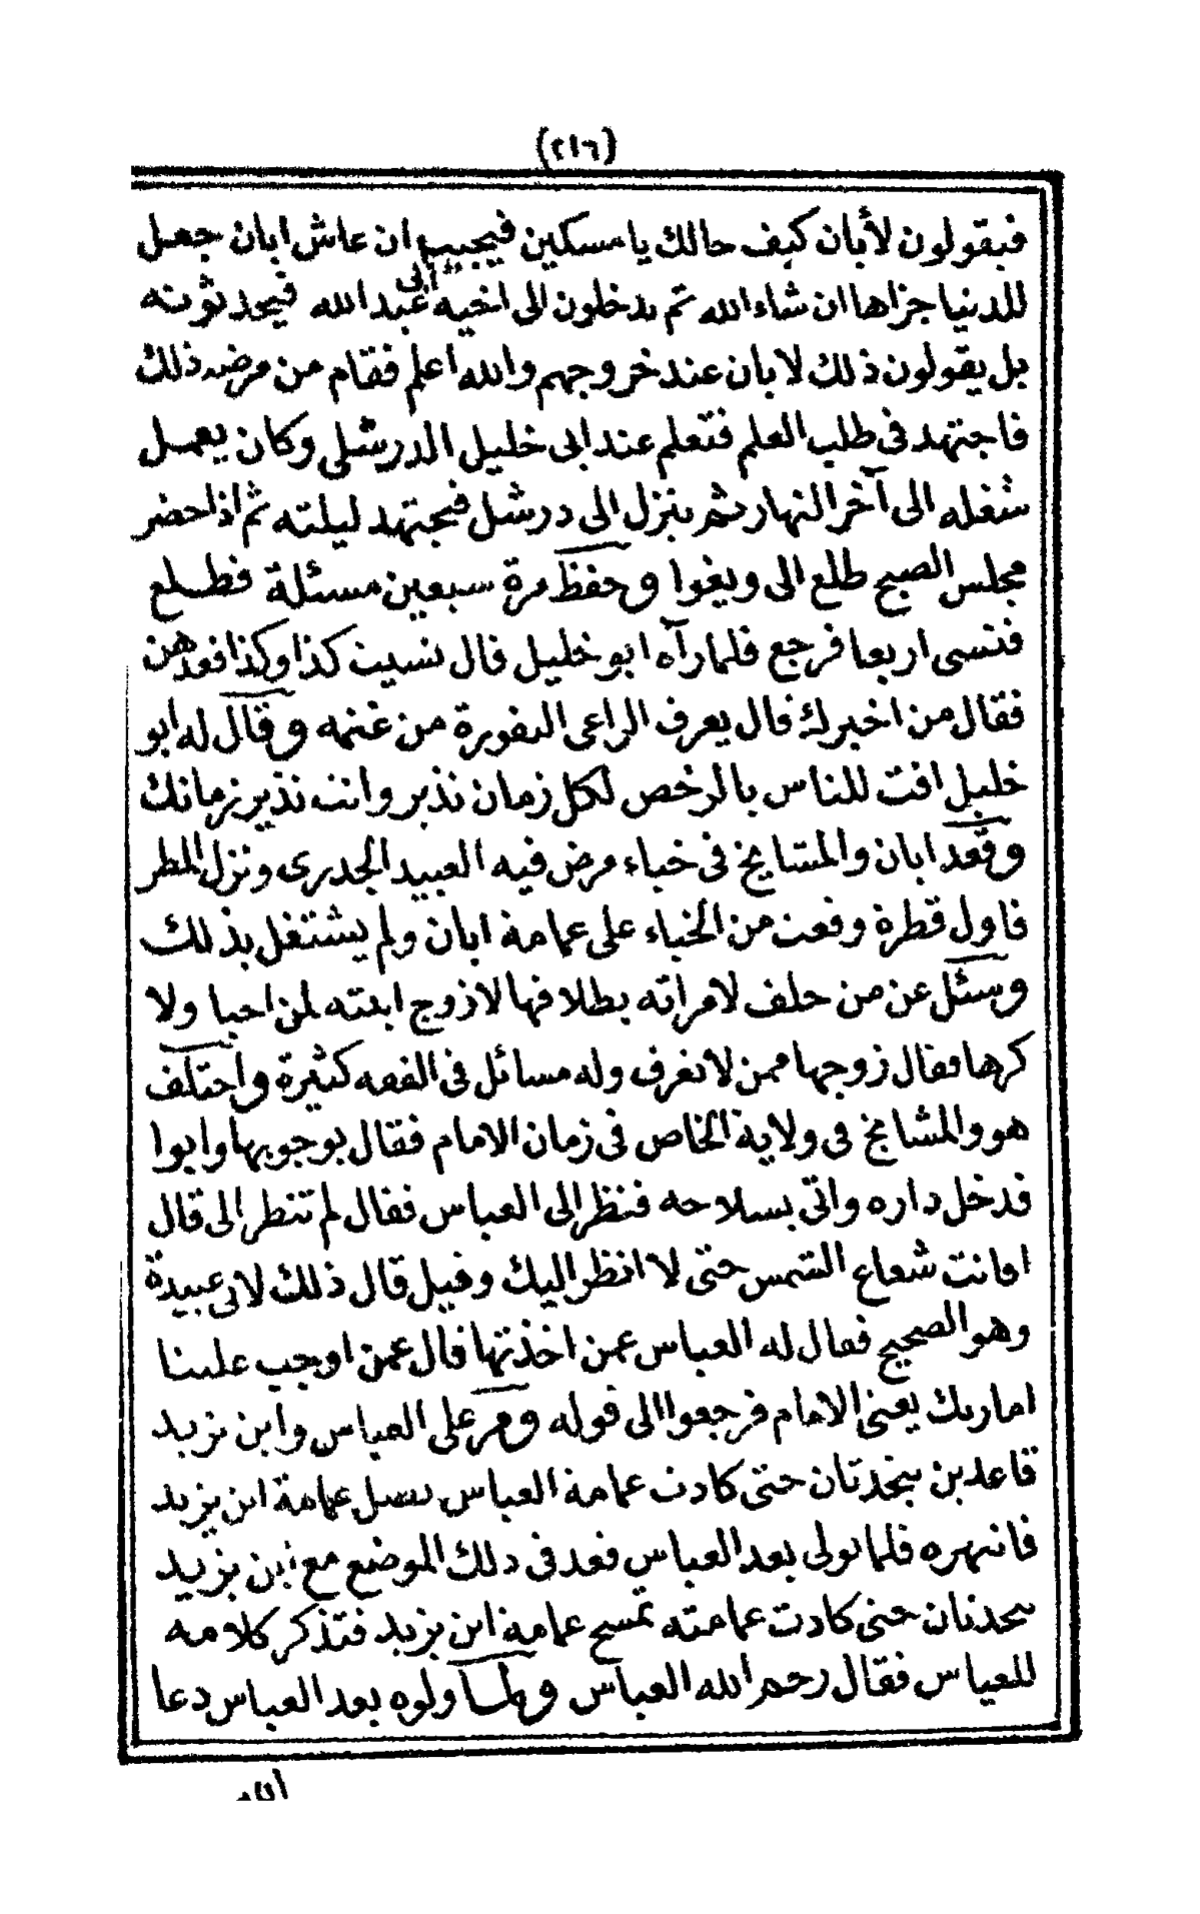 (٢١٦)
فيقولون لأبان كيف حالك يا مسكين فيجيب ان عاش ابان جعل
للدنيا جزاها ان شاء الله ثم يدخلون الى اخيه ابى عبد الله فيحدثونه
بل يقولون ذلك لابان عند خروجهم والله اعلم فقام من مرضه ذلك
فاجتهد فى طلب العلم فتعلم عند ابى خليل الدرشلى وكان يعمل
شغله الى آخر النهار ثم ينزل الى درشل فيجتهد ليلته ثم اذا حضر
مجلس الصبح طلع الى ويغوا وحفظ مرة سبعين مسئلة فطلع
فنسى اربعا فرجع فلما رآه ابو خليل قال نسيت كذا وكذا فعدهن
فقال من اخبرك قال يعرف الراعى النفورة من غنمه وقال له ابو
خليل افت للناس بالرخص لكل زمان نذير وانت نذير زمانك
وقعد ابان والمشايخ فى خباء مرض فيه العبيد الجدرى ونزل المطر
فاول قطرة وقعت من الخباء على عمامة ابان ولم يشتغل بذلك
وسئل عن من حلف لامراته بطلاقها لازوج ابنته لمن احبا ولا
كرها فقال زوجها ممن لا تعرف وله مسائل فى الفقه كثيرة واختلف
هو والمشايخ فى ولاية الخاص فى زمان الامام فقال بوجوبها وابوا
فدخل داره واتى بسلاحه فنظر الى العباس فقال لم تنظر الى قال
اوانت شعاع الشمس حتى لا انظر اليك وقيل قال ذلك لابى عبيدة
وهو الصحيح فقال له العباس عمن اخذتها قال عمن اوجب علينا
امارتك يعنى الامام فرجعوا الى قوله ومر على العباس وابن يزيد
قاعدين يتحدثان حتى كادت عمامة العباس تصل عمامة ابن يزيد
فانتهره فلما تولى بعد العباس قعد فى ذلك الموضع مع ابن يزيد
يتحدثان حتى كادت عمامته تمسح عمامة ابن يزيد فتذكر كلامه
للعباس فقال رحم الله العباس ولما ولوه بعد العباس دعا
الله